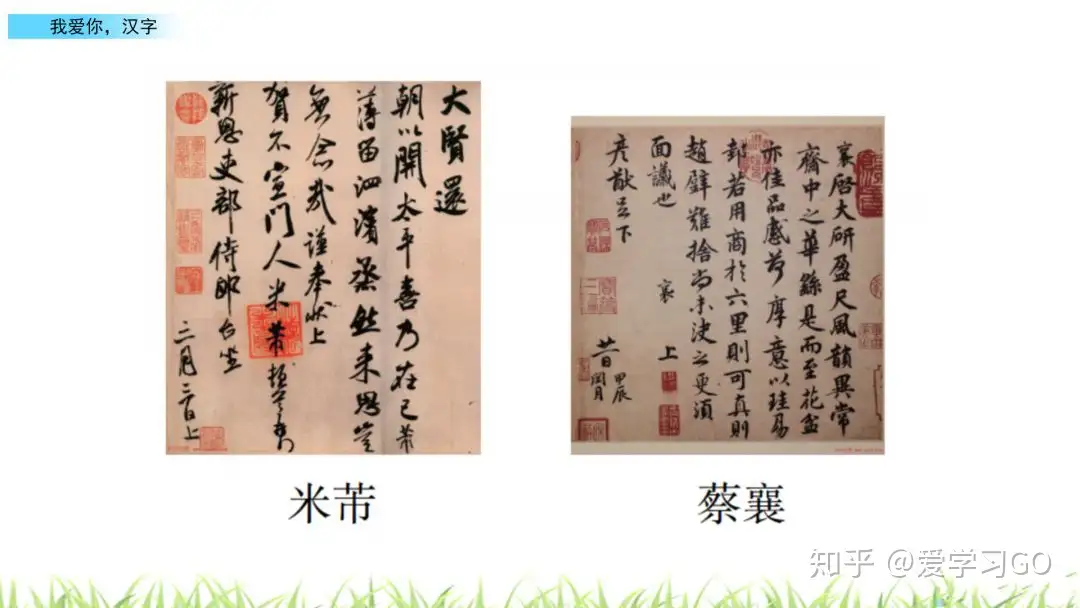 我爱你，汉字
大賢還
朝以開太平喜乃在己芾
薄留泗濱烝然来思豈
無念哉謹奉狀上
賀不宣門人米芾頓首
新恩吏部侍郎台坐
襄啓大研盈尺風韻異常
齋中之華繇是而至花盆
亦佳品感荷厚意以珪易
邽若用商於六里則可真則
趙璧難捨尚未決之更須
面議也 襄上
彥猷足下
廿一日
甲辰
閏月
米芾
蔡襄
知乎 @爱学习GO